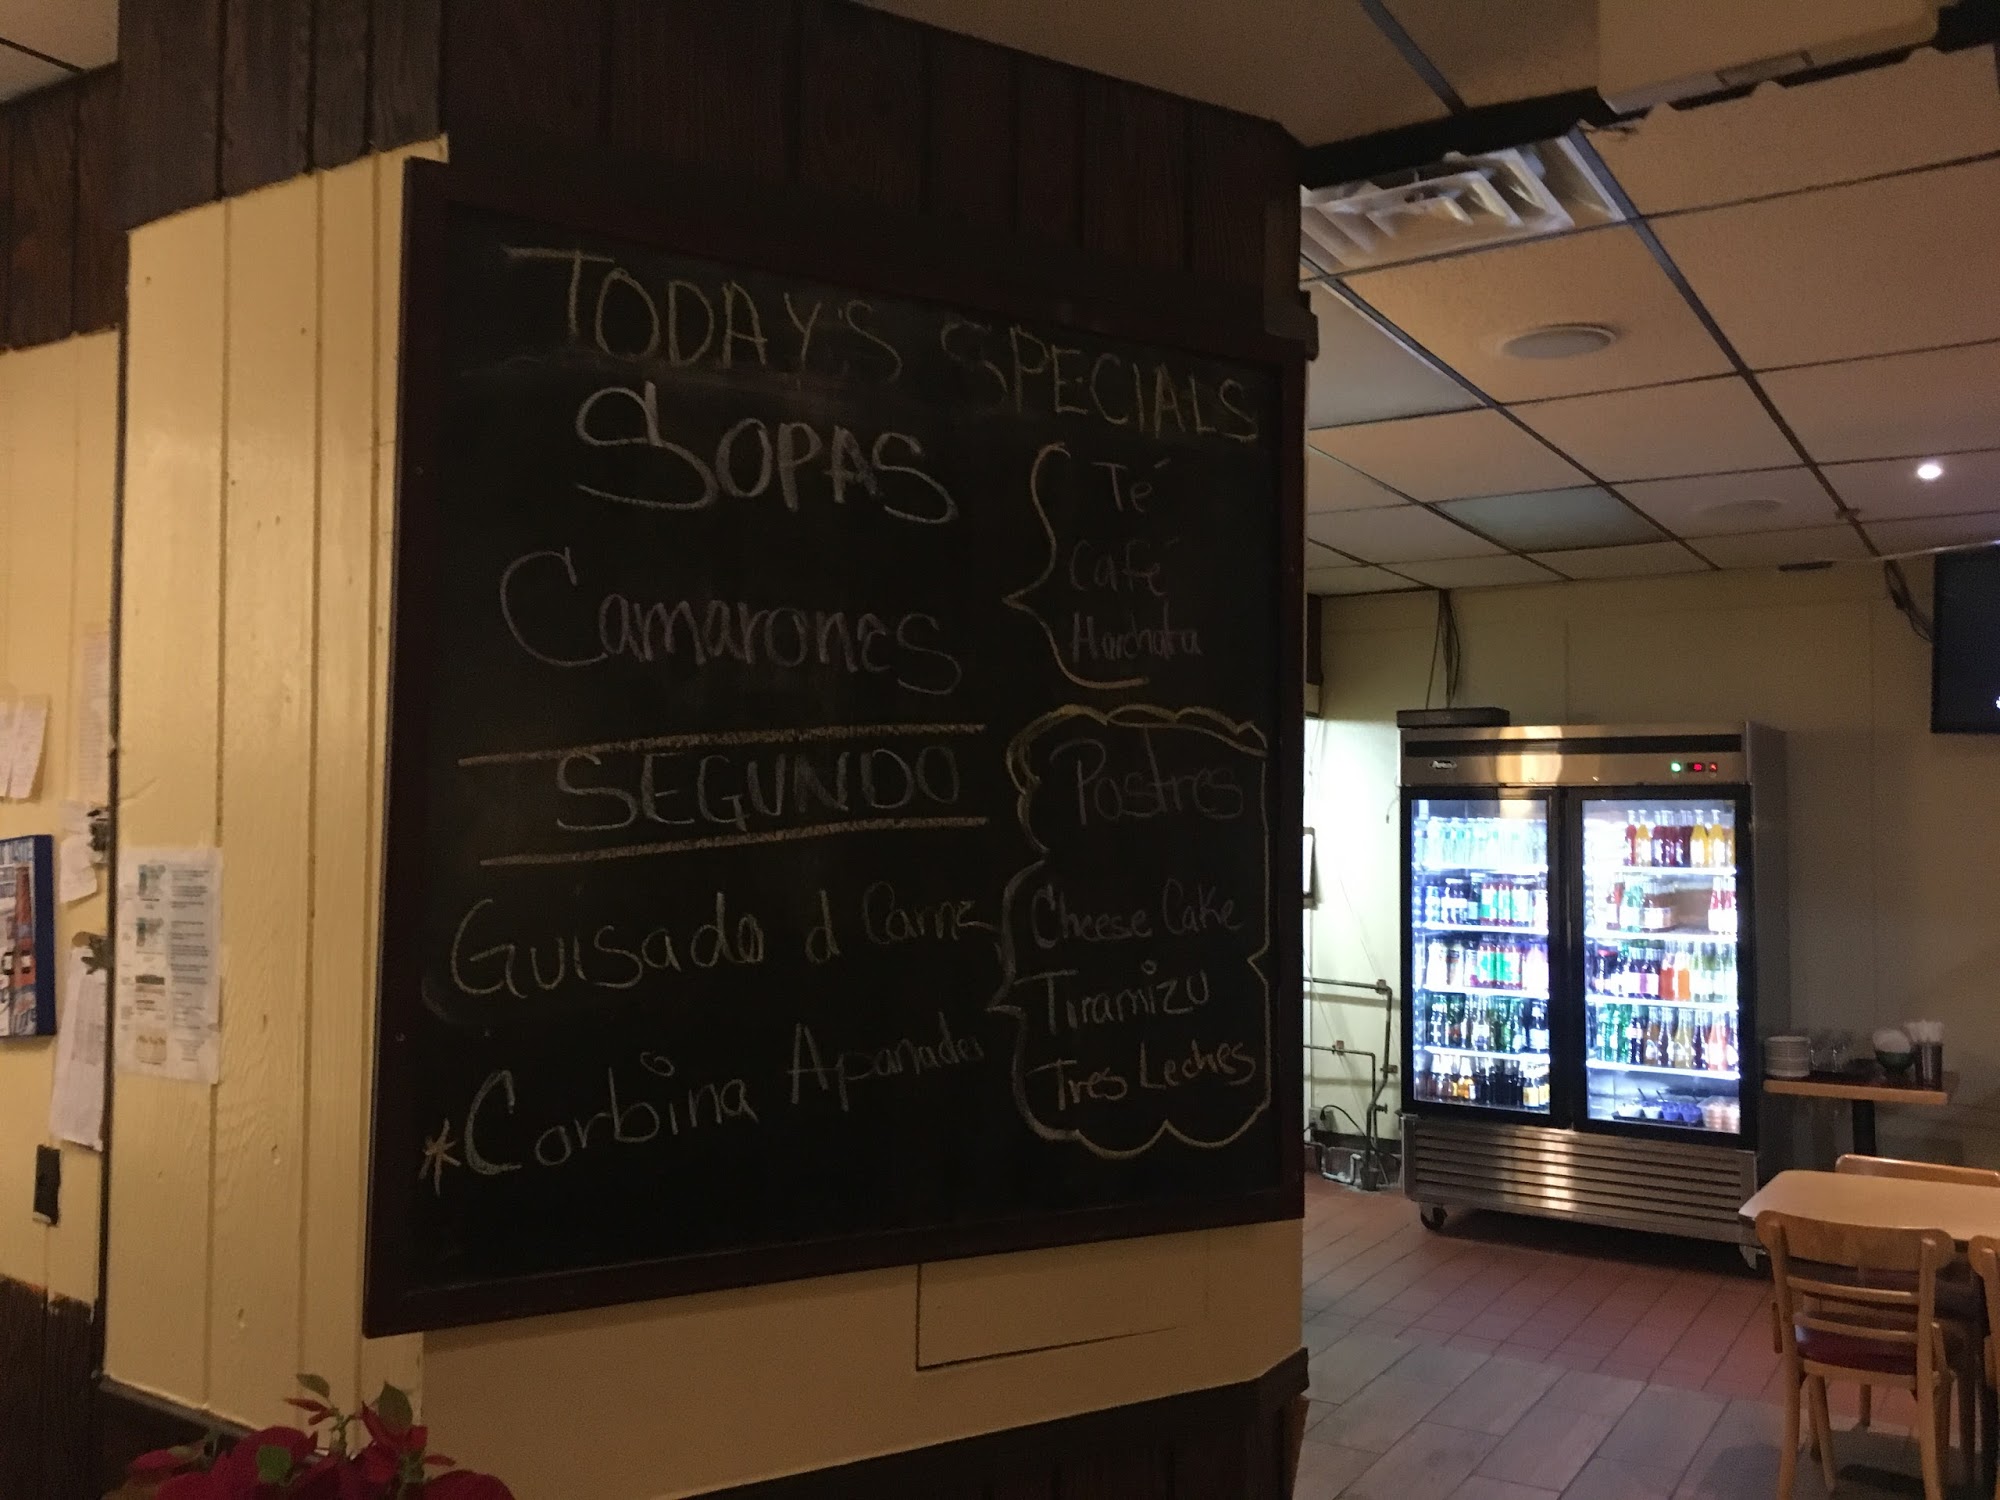 TODAY'S SPECIALS
SOPAS
Camarones
SEGUNDO
Guisado d Carne
*Corbina Apanades
Té
Café
Horchata
Postres
Cheese Cake
Tiramizu
Tres Leches